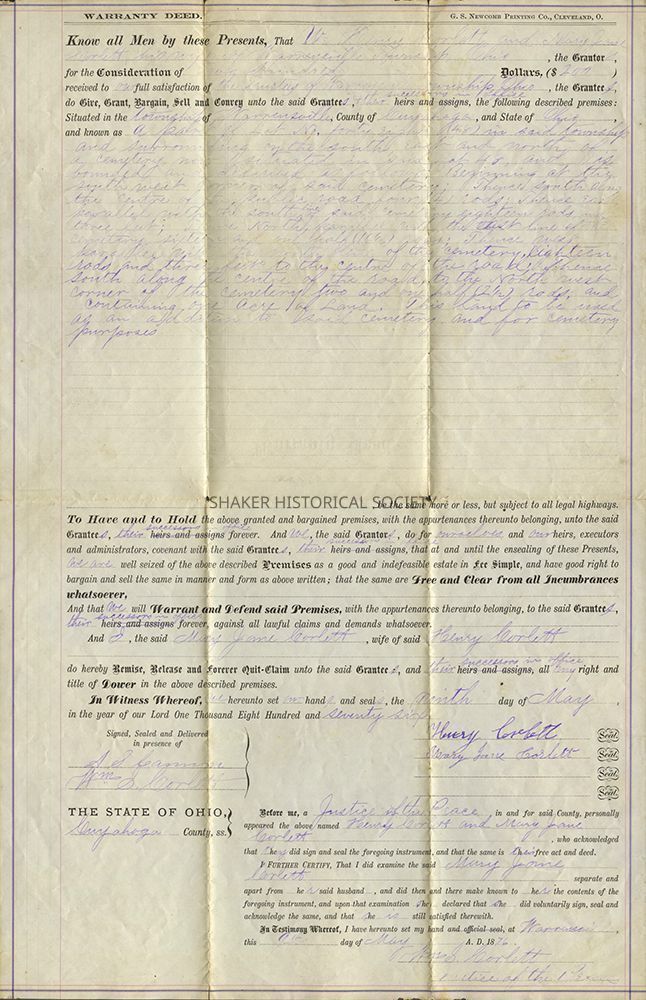 WARRANTY DEED.
G. S. NEWCOMB PRINTING CO., CLEVELAND, O.
Know all Men by these Presents, That We Henry Corlett and Mary Jane
Corlett Ohio, the Grantor,
for the Consideration of Dollars, ($200)
received to our full satisfaction of the Trustees of Township Ohio, the Grantees,
successors in office
do Give, Grant, Bargain, Sell and Convey unto the said Grantees, their heirs and assigns, the following described premises:
Situated in the township of Warrensville, County of Cuyahoga, and State of Ohio,
and known as A part of Lot No. in said township
and surrounding on the south, east and north of
a cemetery now situated in said and is
bounded and described as follows: Beginning at the
south west corner of said cemetery; Thence south along
the centre of public road rods; Thence east
parallel with the south of said cemetery eighteen rods and
three feet; Thence North east line of
cemetery rods; Thence west
of the cemetery, Eighteen
rods and three feet to the centre of the road; Thence
South along the centre of the road to the North west
corner of the cemetery two and one half (2½) rods, and
Containing one acre of Land. This Land to be used
as an addition to said cemetery and for cemetery
purposes
SHAKER HISTORICAL SOCIETY
, be the same more or less, but subject to all legal highways.
To Have and to Hold the above granted and bargained premises, with the appurtenances thereunto belonging, unto the said
successors in office
Grantees, their heirs and assigns forever. And We, the said Grantors, do for ourselves and our heirs, executors
successors
and administrators, covenant with the said Grantees, their heirs and assigns, that at and until the ensealing of these Presents,
we are well seized of the above described Premises as a good and indefeasible estate in Fee Simple, and have good right to
bargain and sell the same in manner and form as above written; that the same are Free and Clear from all Incumbrances
whatsoever,
And that We will Warrant and Defend said Premises, with the appurtenances thereunto belonging, to the said Grantees,
successors in office
their heirs and assigns forever, against all lawful claims and demands whatsoever.
And I, the said Mary Jane Corlett, wife of said Henry Corlett
successors in office
do hereby Remise, Release and Forever Quit-Claim unto the said Grantees, and their heirs and assigns, all my right and
title of Dower in the above described premises.
In Witness Whereof, We hereunto set our hands and seals, the ninth day of May,
in the year of our Lord One Thousand Eight Hundred and seventy six
Signed, Sealed and Delivered
in presence of
Henry Corlett Seal.
Mary Jane Corlett Seal.
Seal.
Seal.
Wm S. Corlett
THE STATE OF OHIO,
Cuyahoga County, ss.
Before me, a Justice of the Peace, in and for said County, personally
appeared the above named Henry Corlett and Mary Jane
Corlett, who acknowledged
that they did sign and seal the foregoing instrument, and that the same is their free act and deed.
I FURTHER CERTIFY, That I did examine the said Mary Jane
Corlett separate and
apart from her said husband, and did then and there make known to her the contents of the
foregoing instrument, and upon that examination she declared that she did voluntarily sign, seal and
acknowledge the same, and that she is still satisfied therewith.
In Testimony Whereof, I have hereunto set my hand and official seal, at
this day of May A. D. 1876.
Wm S. Corlett
Justice of the Peace